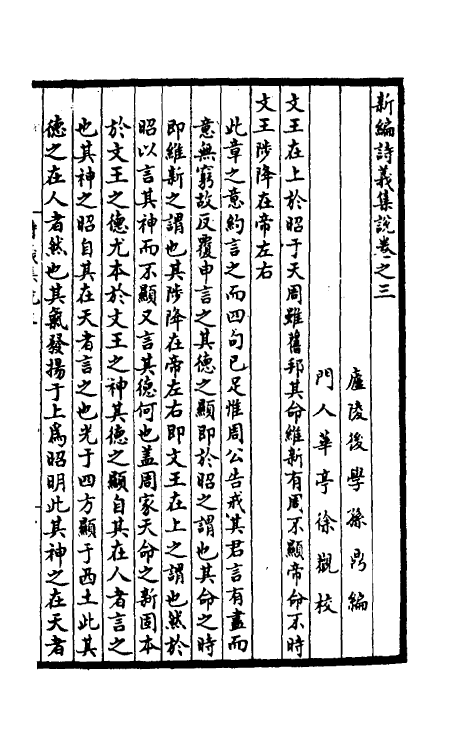 新編詩義集說卷之三
廬陵後學孫鼎編
門人華亭徐觀校
文王在上於昭于天周雖舊邦其命維新有周不顯帝命不時
文王陟降在帝左右
此章之意約言之而四句已足惟周公告戒其君言有盡而
意無窮故反覆申言之其德之顯即於昭之謂也其命之時
即維新之謂也其陟降在帝左右即文王在上之謂也然於
昭以言其神而不顯又言其德何也盖周家天命之新固本
於文王之德尤本於文王之神其德之顯自其在人者言之
也其神之昭自其在天者言之也光于四方顯于西土此其
德之在人者然也其氣發揚于上爲昭明此其神之在天者